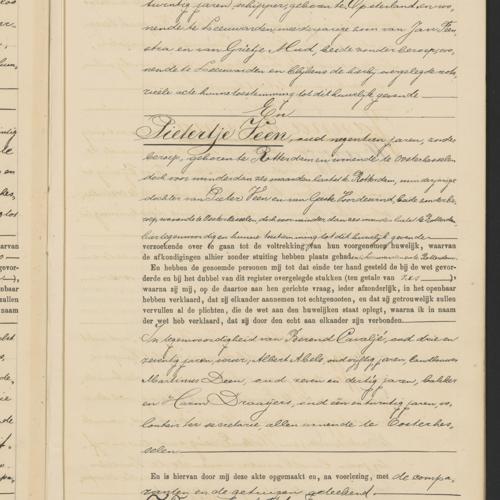 twintig jaren, schipper, geboren te Opsterland en wo,
nende te Leeuwarden, meerderjarige zoon van Jan Feen
stra en van Grietje Mud, beide zonder beroep, wo,
nende te Leeuwarden en blijkens de hierbij overgelegde nota,
rieële acte hunne toestemming tot dit huwelijk gevende
En
Pietertje Veen, oud negentien jaren, zonder
beroep, geboren te Rotterdam en wonende te Oosterhesselen
doch voor minder dan zes maanden laatst te Rotterdam, minderjarige
dochter van Pieter Veen en van Geeske Voordewind, beide zonder be,
roep, wonende te Oosterhesselen, doch voor minder dan zes maanden laatst te Rotterdam
hier tegenwoordig en hunne toestemming tot dit huwelijk gevende
verzoekende over te gaan tot de voltrekking van hun voorgenomen huwelijk, waarvan
de afkondigingen alhier zonder stuiting hebben plaats gehad en te Rotterdam.
En hebben de genoemde personen mij tot dat einde ter hand gesteld de bij de wet gevor-
derde en bij het dubbel van dit register overgelegde stukken (ten getale van zes )
waarna zij mij, op de daartoe aan hen gerichte vraag, ieder afzonderlijk, in het openbaar
hebben verklaard, dat zij elkander aannemen tot echtgenooten, en dat zij getrouwelijk zullen
vervullen al de plichten, die de wet aan den huwelijken staat oplegt, waarna ik in naam
der wet heb verklaard, dat zij door den echt aan elkander zijn verbonden.
In tegenwoordigheid van Berend Cavaljé, oud drie en
zeventig jaren, Albert Abels, oud vijftig jaren, landbouwer
Marinus Deen, oud zeven en dertig jaren, bakker
en Harm Draaijers, oud één en twintig jaren, vo,
lontair ter secretarie, allen wonende te Oosterhes,
selen
En is hiervan door mij deze akte opgemaakt en, na voorlezing, met de compa,
ranten en de getuigen geteekend